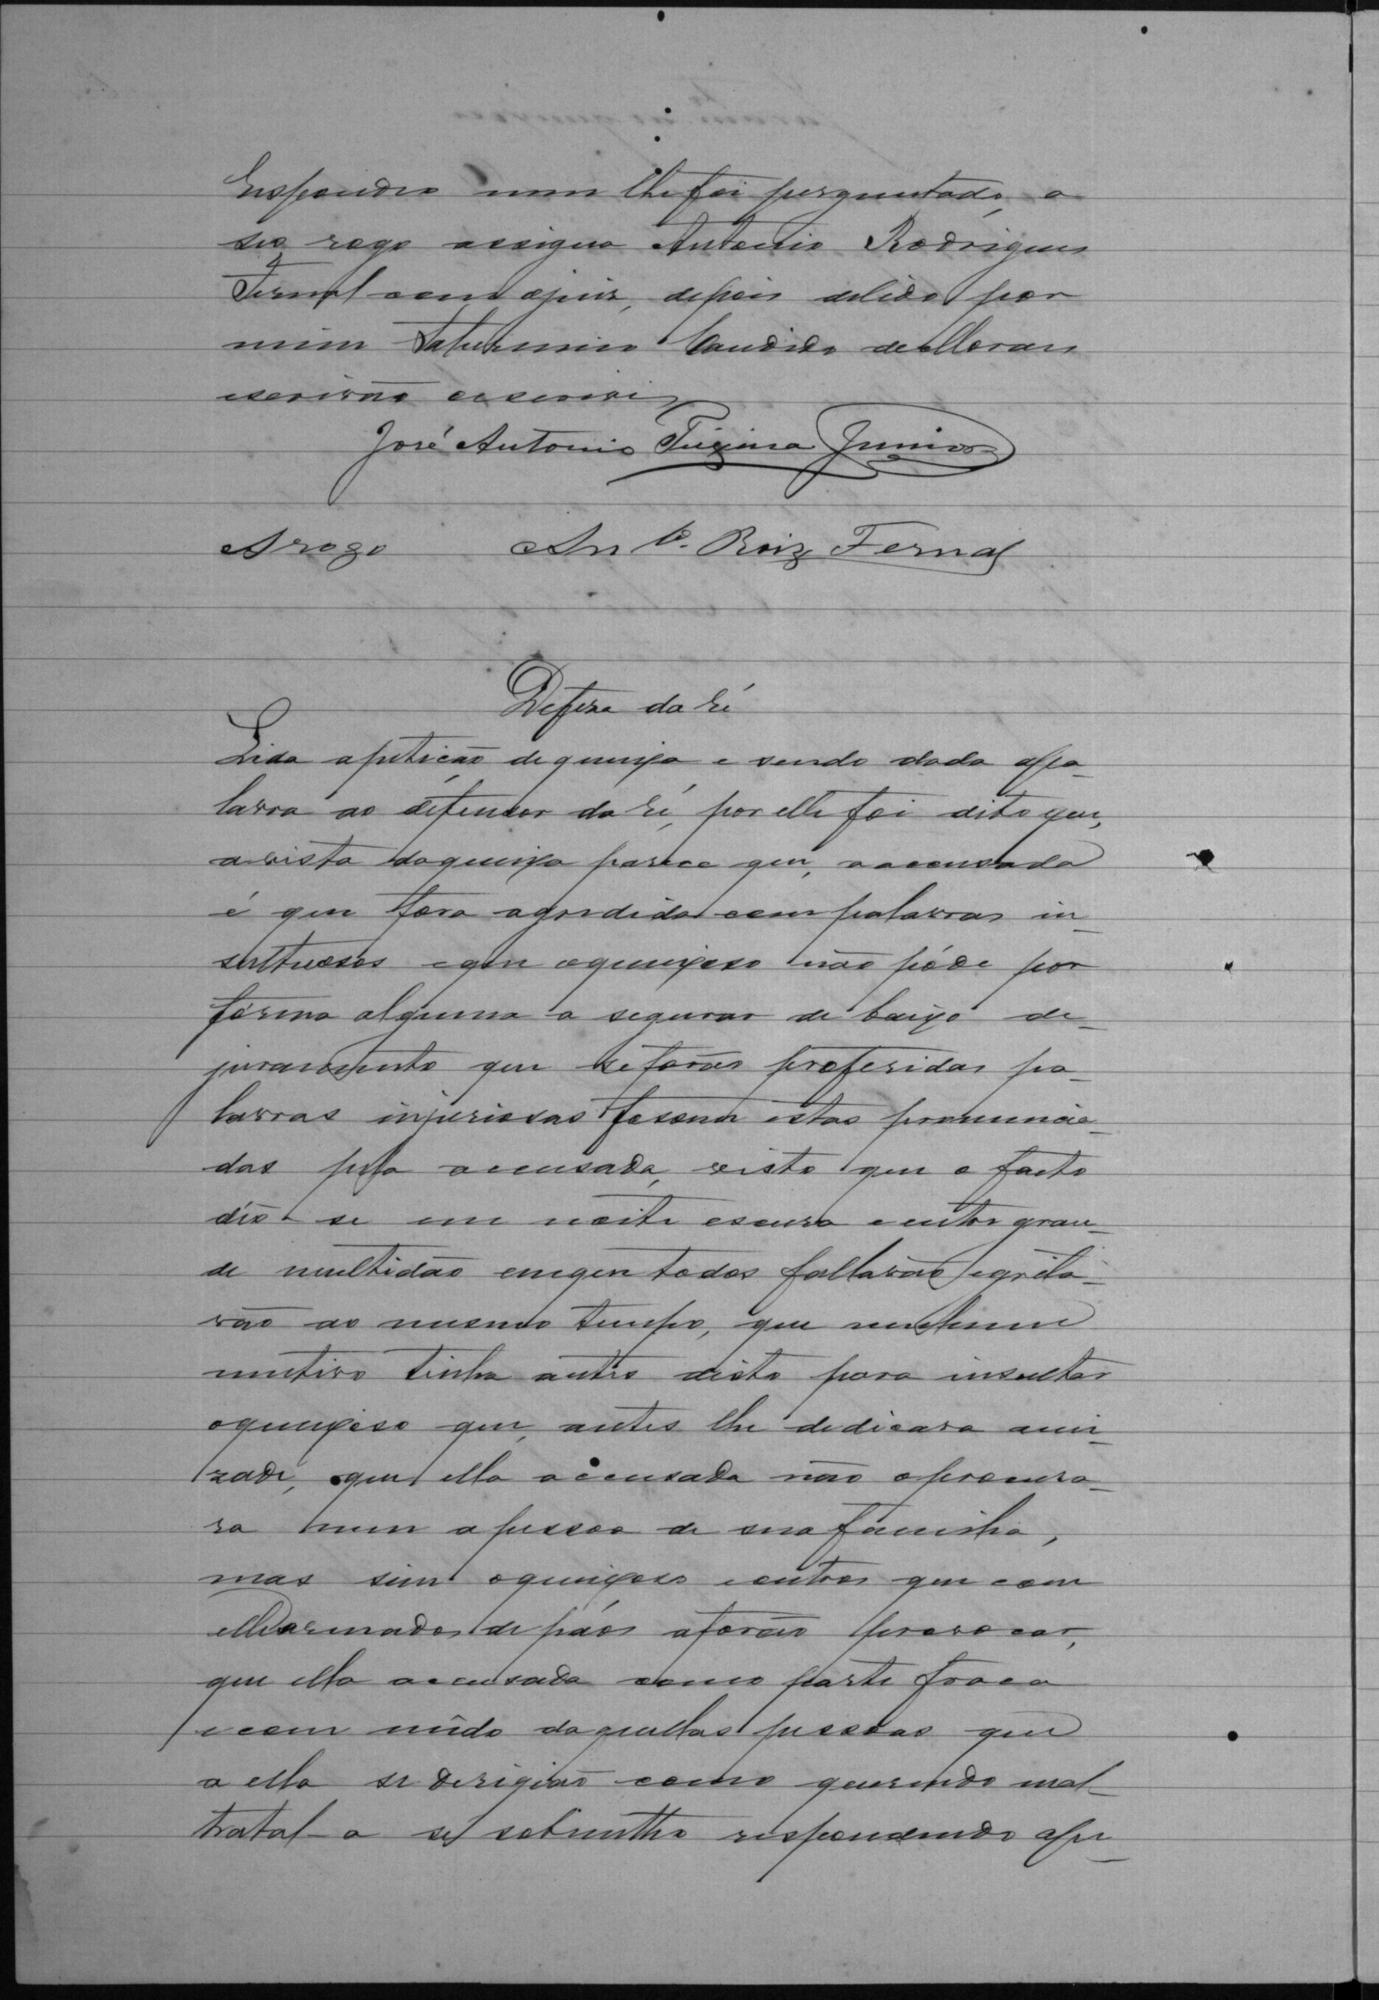 Respondeo nem lhe foi perguntado, a
seo rogo assigna Antonio Rodrigues
Fernal com ojuiz, depois delido por
mim Saturnino Candido de Moraes
escrivão o escrivi
José Antonio Teixeira Junior
Arogo Anto. Roiz Fernal
Defesa da ré
Lida apetição de queixa e sendo dada apa-
lavra ao defensor da ré, por elle foi dito que,
avista daqueixa parece que, aaccusada
é que fora agredida com palavras in-
sultuosas eque oqueixoso não póde por
forma alguma a segurar de baixo de-
juramento que se forão proferidas pa-
lavras injuriosas fosem estas pronuncia-
das pela accusada, visto que o facto
deo-se em noite escura eentre gran-
de multidão emque todos fallavão egrita-
vão ao mesmo tempo, que nenhum
mutivo tinha antes disto para insultar
oqueixoso que, antes lhe dedicava ami-
zade, que ella accusada não oprocura-
ra nem apessoa de sua familia,
mas sim oqueixoso eoutros que com
elle armados de páos aforão provocar,
que ella accusada como parte fraca
ecom mêdo daquellas pessoas que
a ella se derigião como querendo mal-
tratal-a se sobmetteo respondendo ape-